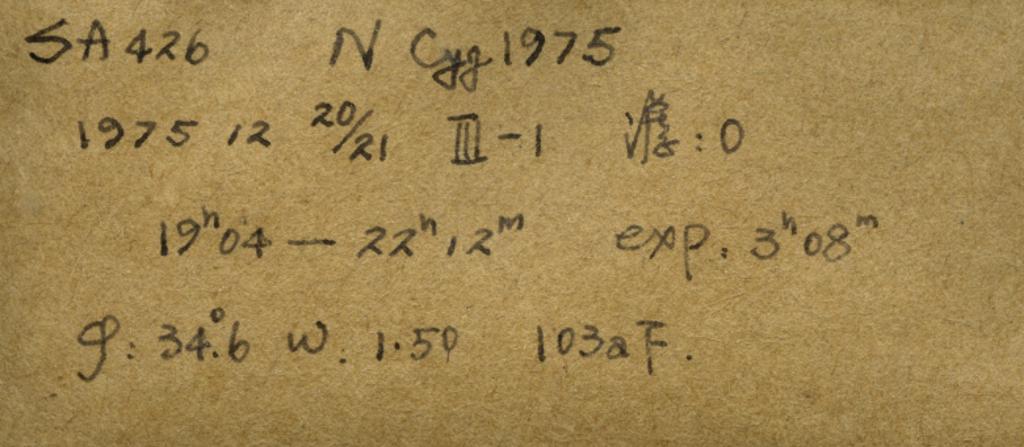 SA 426 N Cyg 1975
1975 12 20/21 III-1 : 0
19ʰ04 — 22ʰ12ᵐ exp. 3ʰ08ᵐ
φ: 34.°6 w. 1.50 103aF.